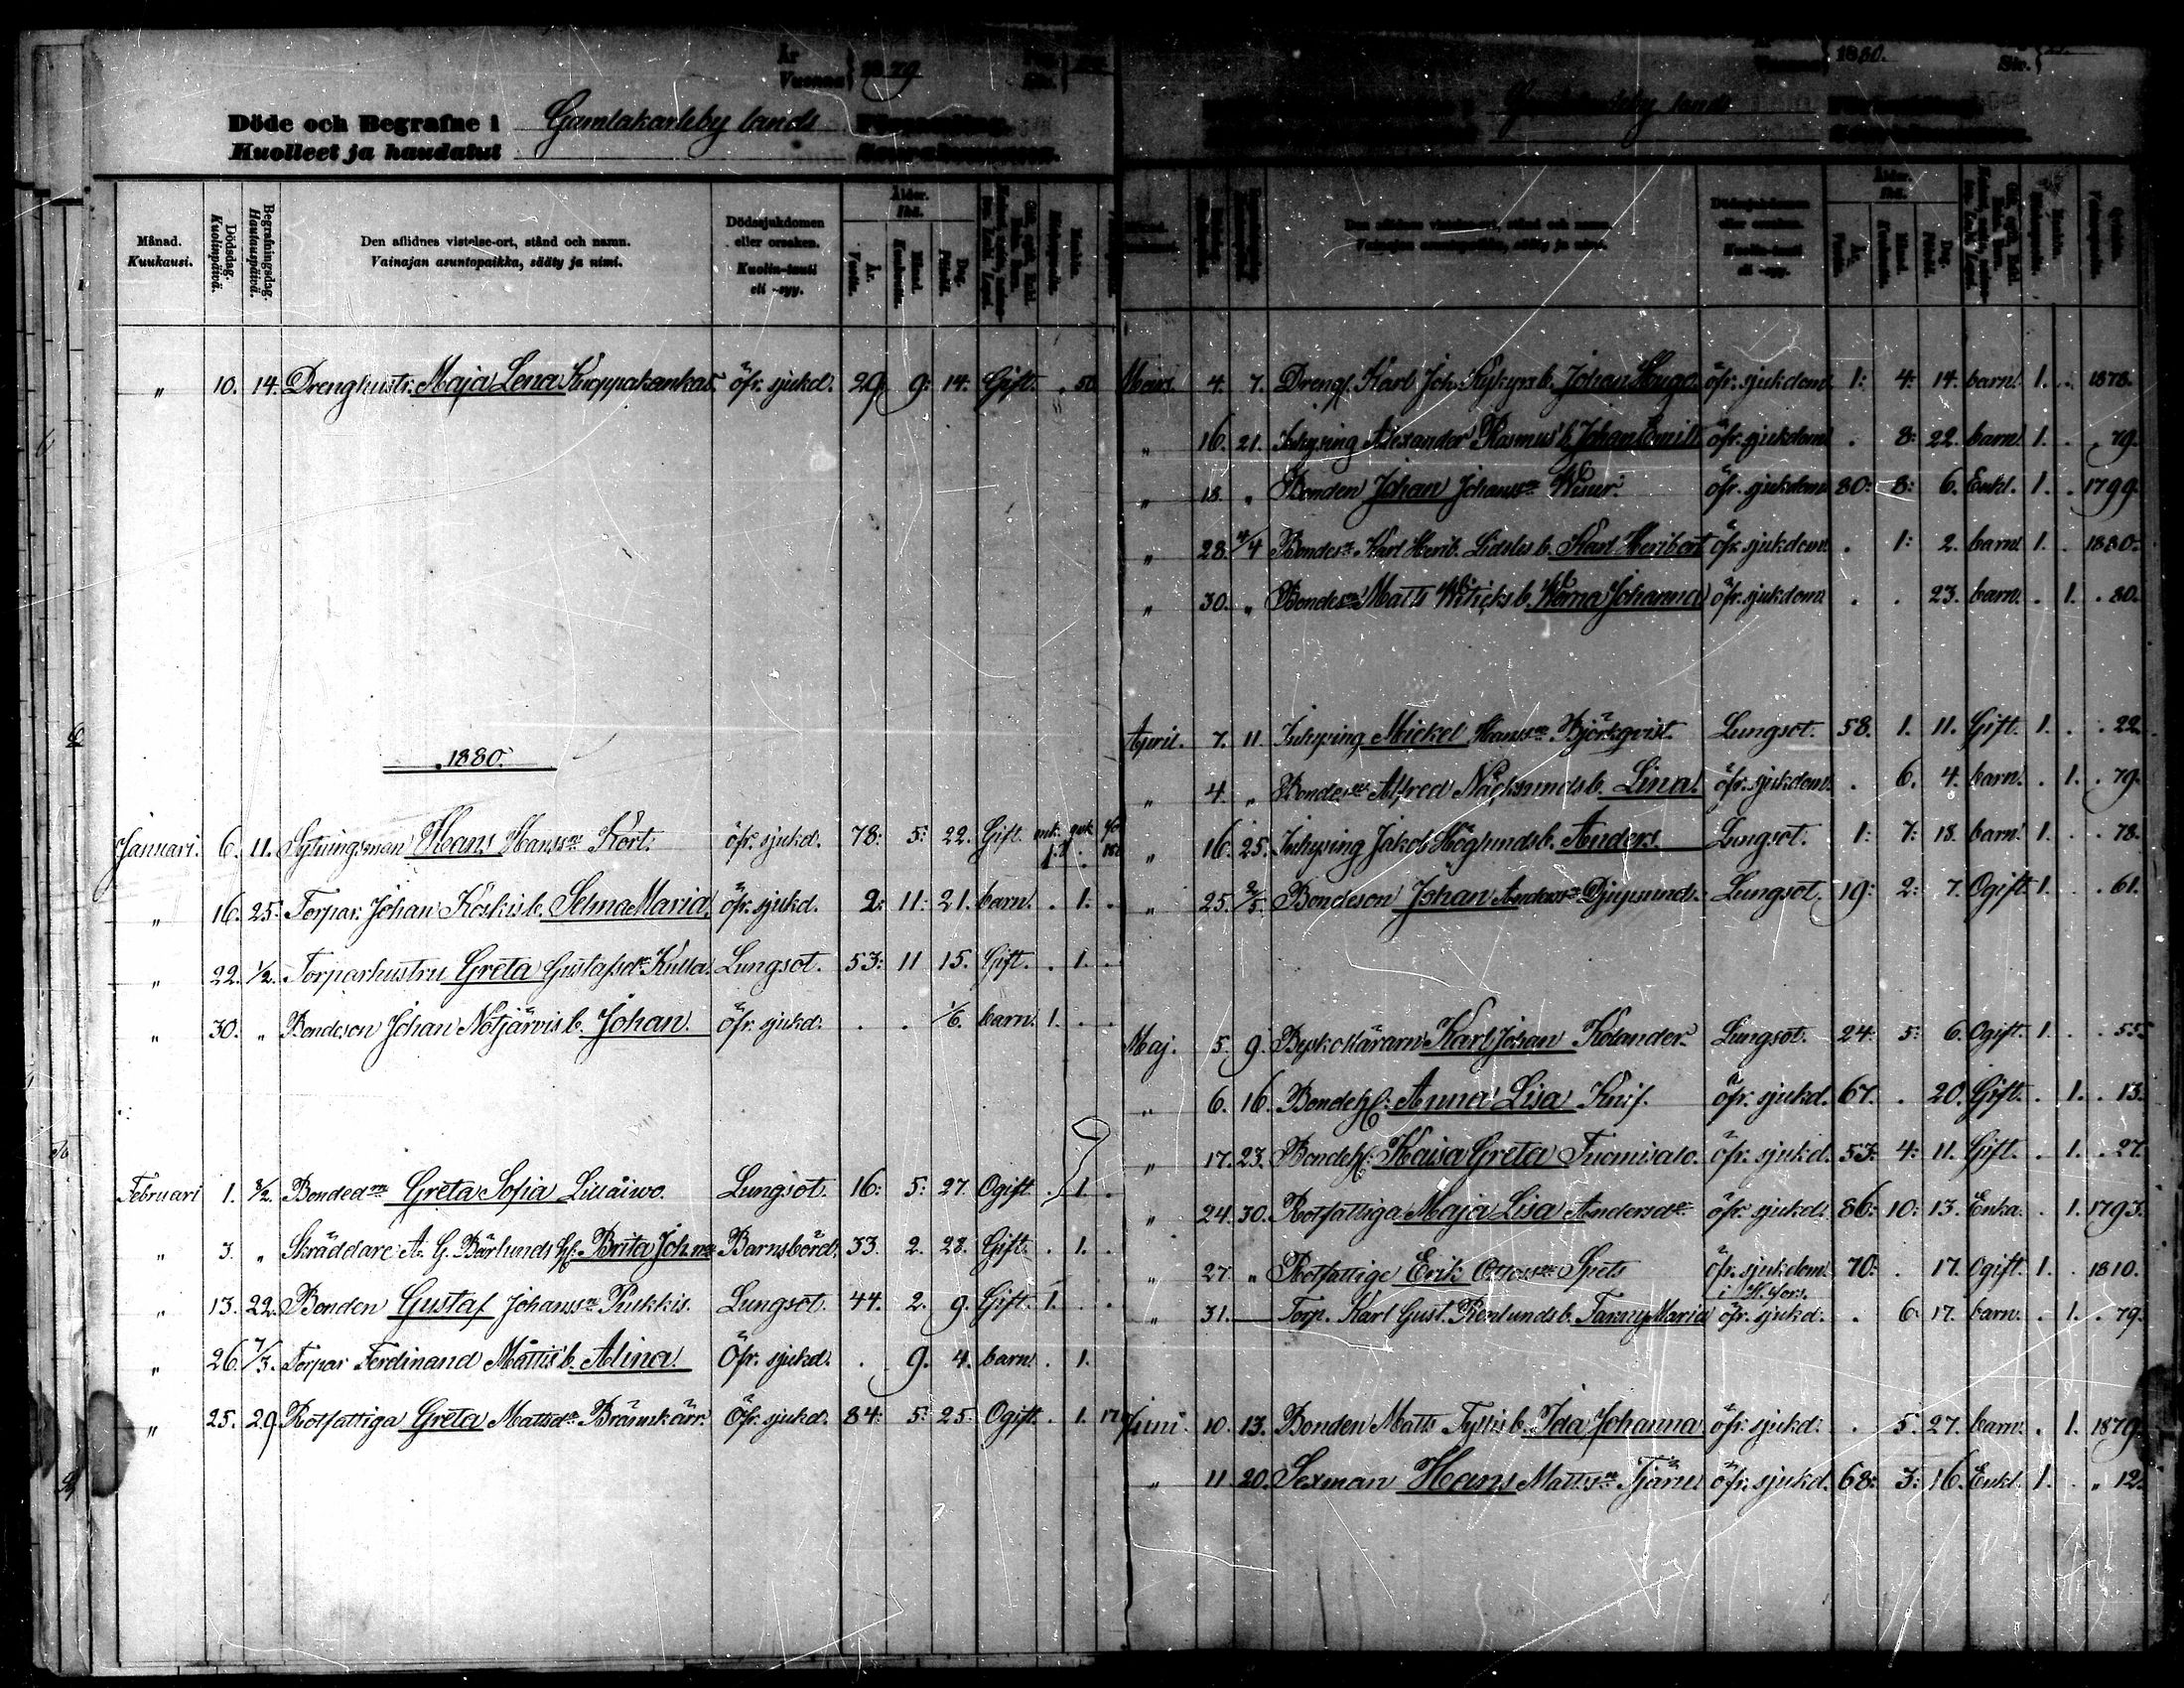 År
Vuonna } 1879
Döde och Begrafne i Gamlakarleby lands Församling.
Kuolleet ja haudatut Seurakunnassa.
Månad. Kuukausi.
Dödsdag. Kuolinpäivä.
Begrafningsdag. Hautauspäivä.
Den aflidnes vistelse-ort, stånd och namn.
Vainajan asuntopaikka, sääty ja nimi.
Dödssjukdomen eller orsaken.
Kuolin-tauti eli -syy.
Ålder. Ikä.
År. Vuotta.
Månad. Kuukautta.
Dag. Päivää.
„ 10. 14. Drenghustr. Maja Lena Kuoppakankas. öfr. sjukd. 29. 9: 14. Gift. . 50
1880.
Januari. 6. 11. Sytningsman Hans Hanss. Kort. öfr. sjukd. 78: 5: 22. Gift. mk. qvk. 1.
„ 16. 25. Torpar. Johan Koskis b. Selma Maria. öfr. sjukd. 2: 11: 21. barn. . 1. .
„ 22. 1/2. Torparhustru Greta Gustafsdr Kulla. Lungsot. 53: 11 15. Gift. . 1. .
„ 30. „ Bondeson Johan Notjärvis b. Johan. öfr. sjukd. . . 1/6. barn. 1. . .
Februari 1. 8/2. Bondedr Greta Sofia Lillåiwo. Lungsot. 16: 5: 27. Ogift. . 1. .
„ 3. „ Skräddare A. G. Bärlunds h. Brita Joh:na Barnsbörd. 33. 2. 28. Gift. . 1. .
„ 13. 22. Bonden Gustaf Johanss. Pukkis. Lungsot. 44. 2. 9. Gift. 1. . .
„ 26. 7/3. Torpar Ferdinand Mattis b. Alina. Öfr. sjukd. . 9. 4. barn. . 1.
„ 25. 29. Rotfattiga Greta Mattsdr Brännkärr. Öfr. sjukd. 84: 5: 25. Ogift. . 1. 17
1880.
Gamlakarleby lands
Den aflidnes vistelse-ort, stånd och namn.
Vainajan asuntopaikka, sääty ja nimi.
Mars. 4. 7. Dreng. Karl Joh. b. Johan Hugo. öfr. sjukdom. 1: 4: 14. barn. 1. . 1878.
„ 16. 21. Inhysing Alexander Rasmus b. Johan Emil öfr. sjukdom. . 8: 22. barn. 1. . 79.
„ 18. „ Bonden Johan Johanss. öfr. sjukdom. 80: 8: 6. Enkl. 1. . 1799.
„ 28. 4/4 Bondesn Karl Herib. b. Karl Heribert öfr. sjukdom. . 1: 2. barn. 1. . 1880.
„ 30. „ Bondesn Matts Witicks b. Werna Johanna öfr. sjukdom. . . 23. barn. . 1. . 80.
April. 7. 11. Inhysing Mickel Hanss. Björkqvist. Lungsot. 58. 1. 11. Gift. 1. . . 22.
„ 4. „ Bondesn Alfred Näcksunds b. Lina. öfr. sjukdom. . 6. 4. barn. . 1. . 79.
„ 16. 25. Inhysing Jakob Höglunds b. Anders. Lungsot. 1: 7: 18. barn. 1. . . 78.
„ 25. 2/5. Bondeson Johan Anderss. Djupsund. Lungsot. 19: 2: 7. Ogift 1. . . 61.
Maj. 5. 9. Byskolärarn Karl Johan Kolander. Lungsot. 24: 5: 6. Ogift. 1. . . 55.
„ 6. 16. Bondeh. Anna Lisa Knif. öfr. sjukd. 67. . 20. Gift. . 1. . 13.
„ 17. 23. Bondeh. Kaisa Greta Tuomisalo. öfr. sjukd. 53: 4: 11. Gift. . 1. . 27.
„ 24. 30. Rotfattiga Maja Lisa Andersdr öfr. sjukd. 86: 10: 13. Enka. . 1. 1793.
„ 27. „ Rotfattige Erik Ottoss. Spets öfr. sjukdom. 70: . 17. Ogift. 1. . 1810.
„ 31. — Torp. Karl Gust. Renlunds b. Fanny Maria öfr. sjukd. . 6 17. barn. . 1. . 79.
Juni. 10. 13. Bonden Matts Tyllis b. Ida Johanna. öfr. sjukd. . 5. 27. barn. . 1. 1879.
„ 11. 20. Sexman Hans Mattss. Tjäru öfr. sjukd. 68: 3: 16. Enkl. 1. . „ 12.